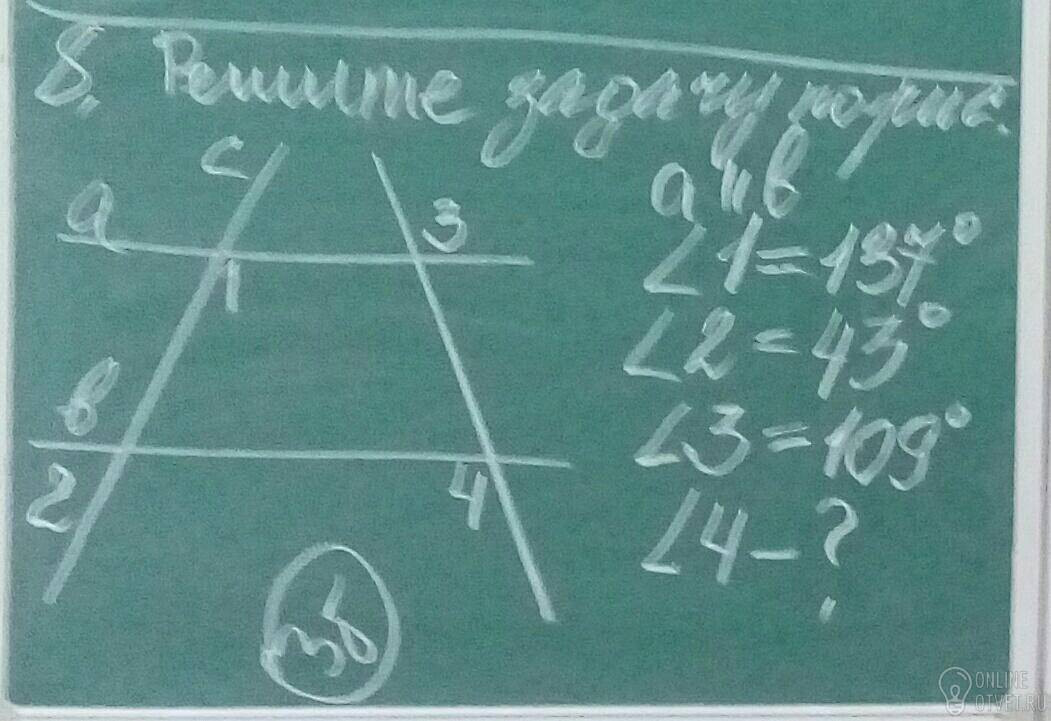 5. Решите задачу
c
a
3
1
в
2
4
a ıı в
∠1=137°
∠2=43°
∠3=109°
∠4-?
3б
ONLINE
OTVET.RU